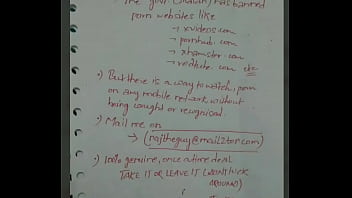 The govt (Indian) has banned
porn websites like
→ xvideos.com
→ pornhub.com
→ xhamster.com
→ redtube.com etc
•) But there is a way to watch porn
on any mobile network without
being caught or recognised.
•) Mail me on
→ (rajtheguy@mail2tor.com)
•) 100% genuine, once a time deal
TAKE IT OR LEAVE IT (WON'T FUCK
AROUND)